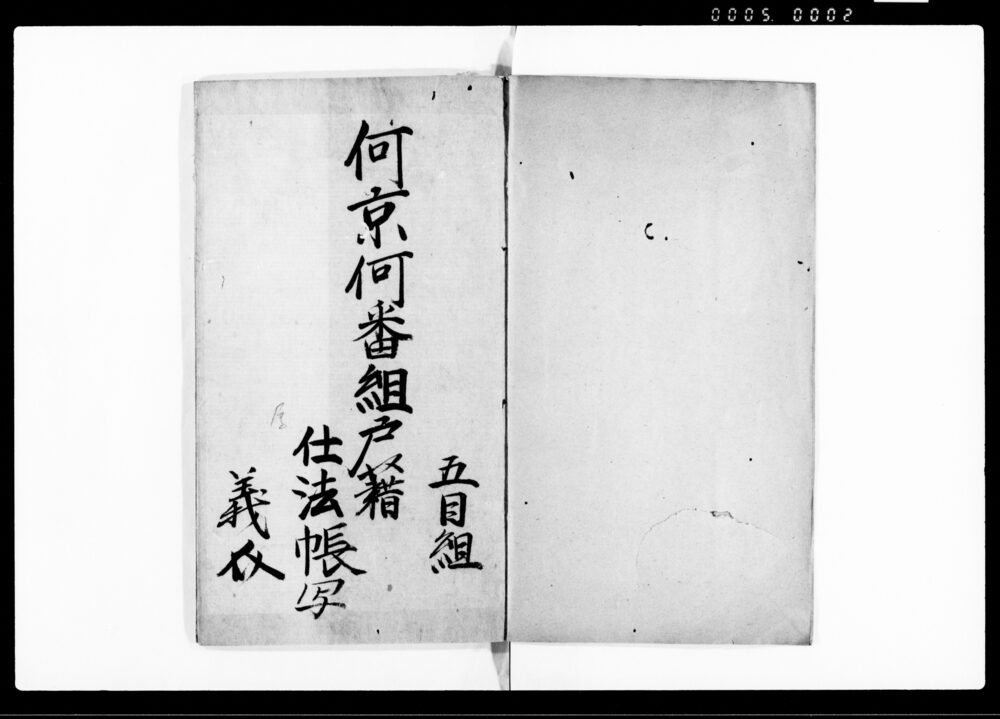 0005. 0002
五目組
何京何番組戸籍
仕法帳写
義